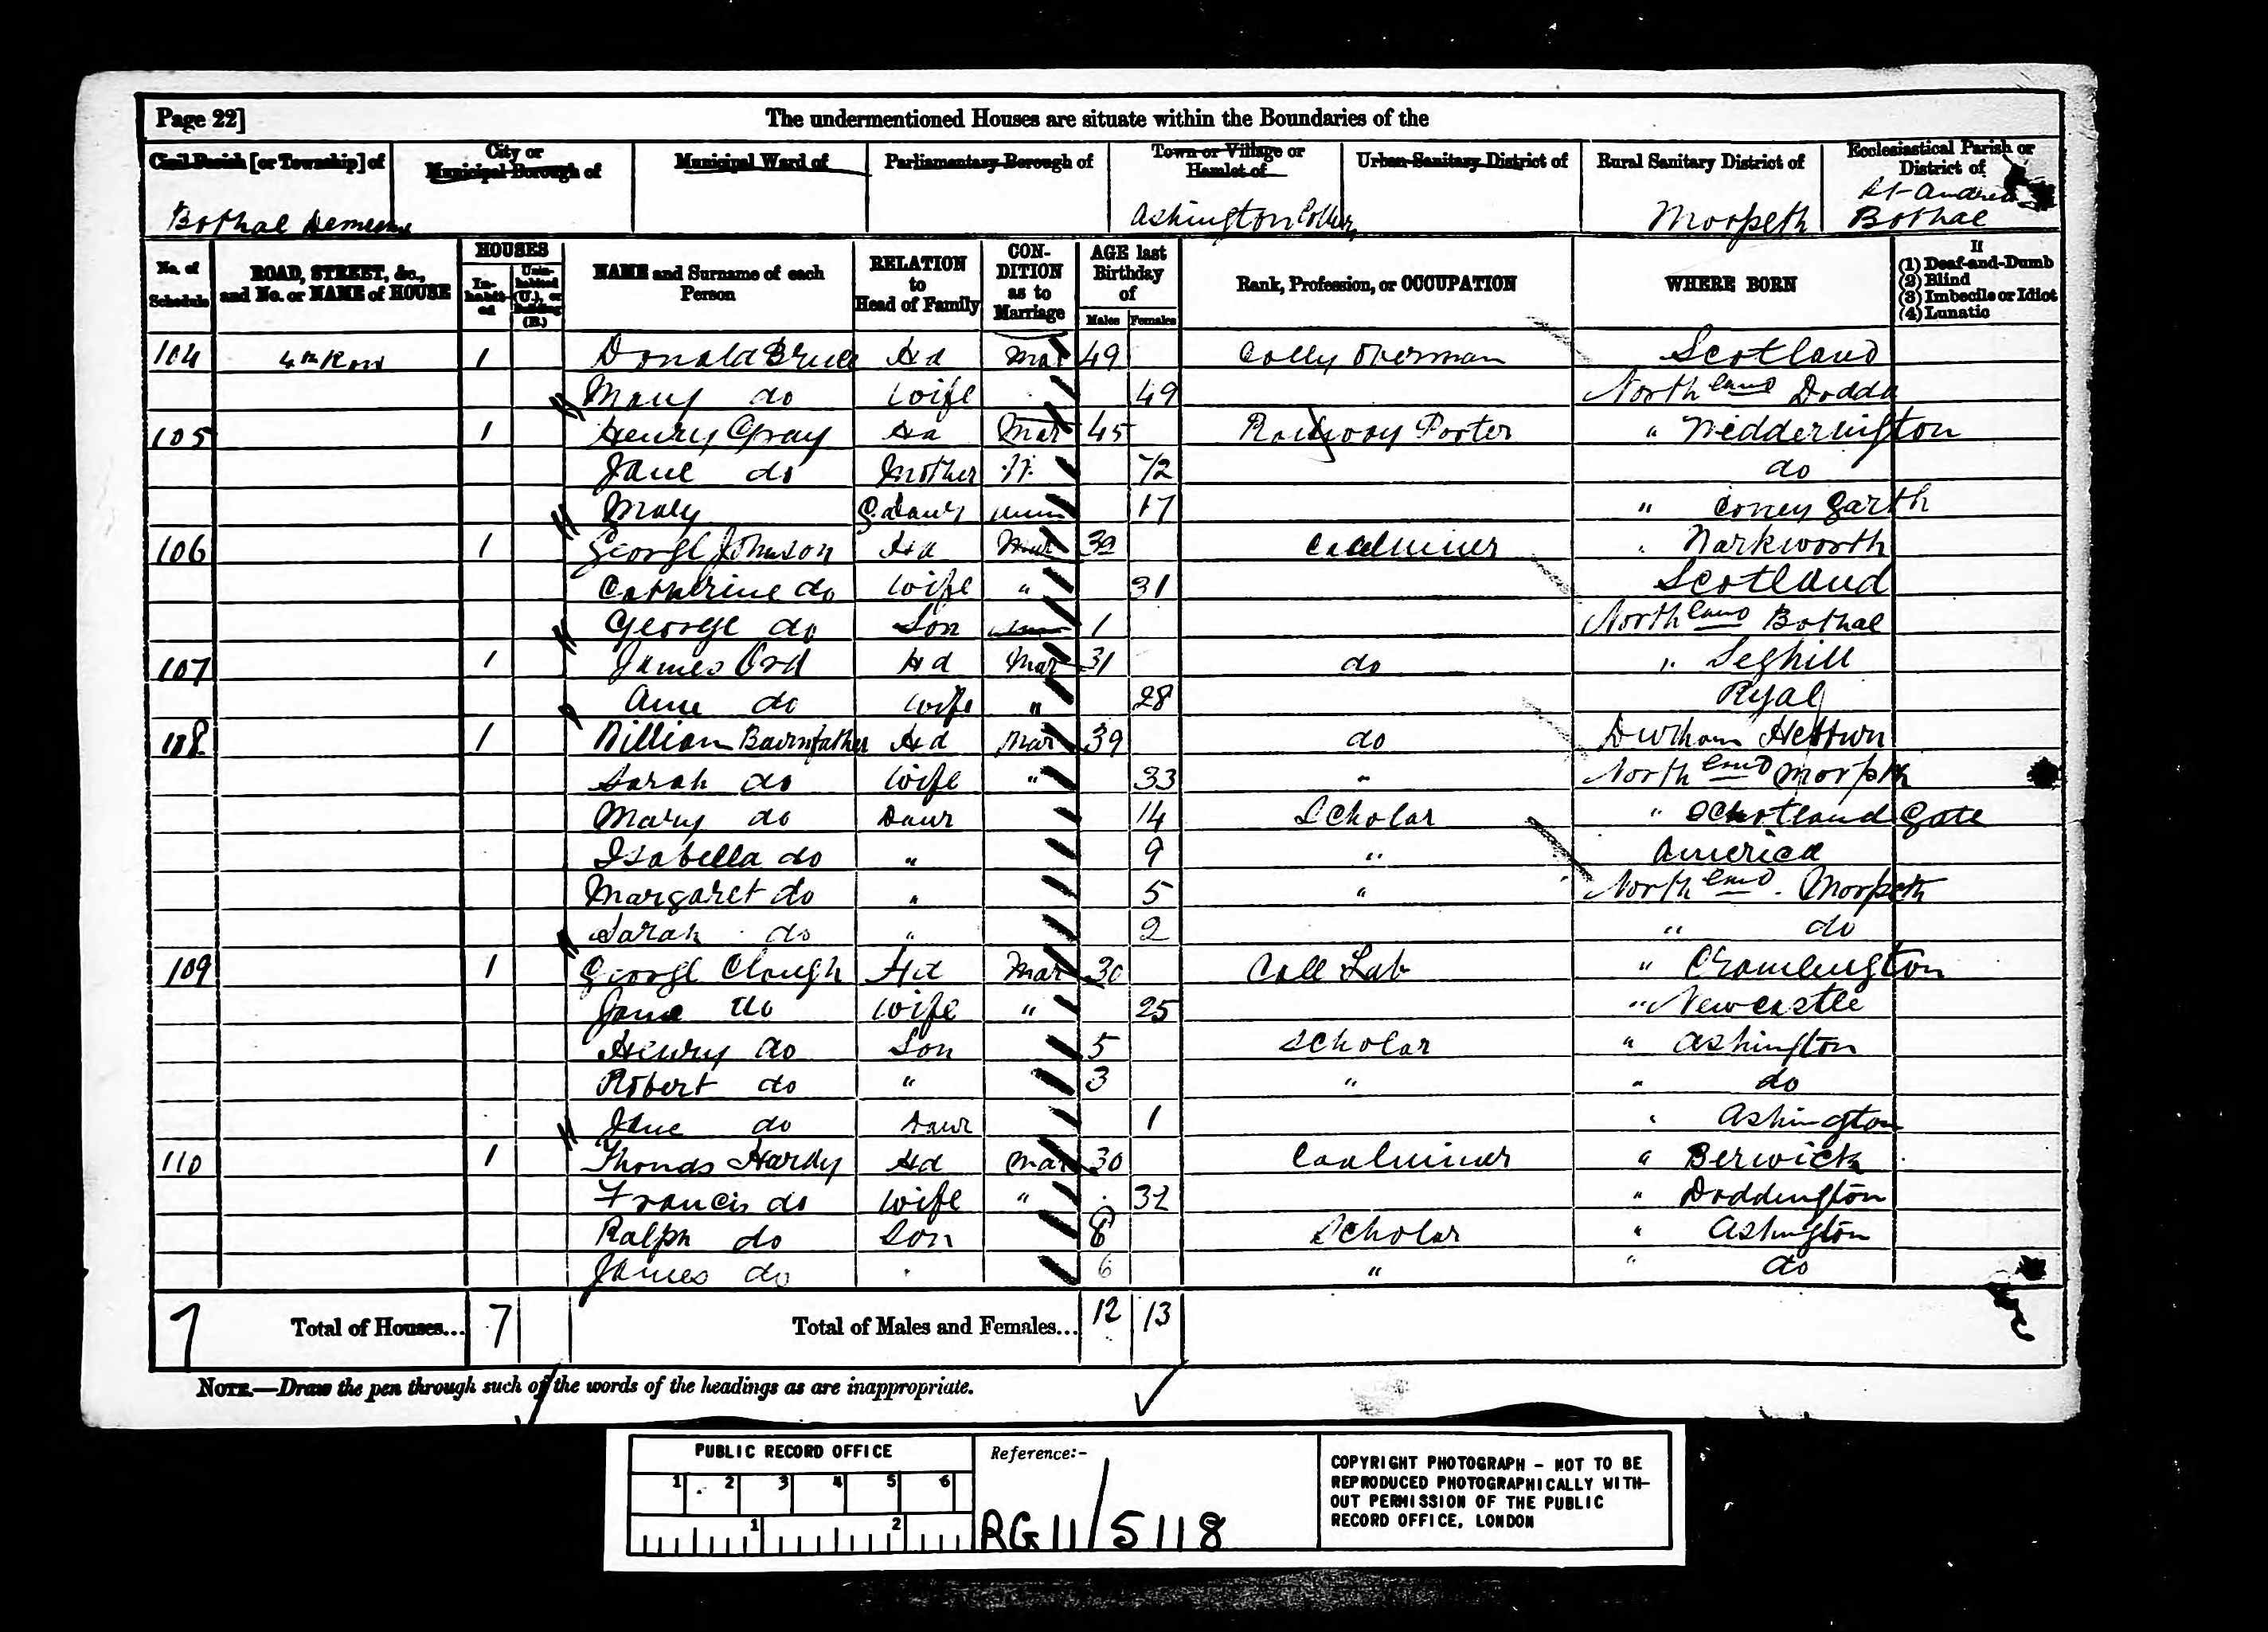 Page 22]
The undermentioned Houses are situate within the Boundaries of the
Civil Parish [or Township] of
City or Municipal Borough of
Municipal Ward of
Parliamentary Borough of
Town or Village or Hamlet of
Urban Sanitary District of
Rural Sanitary District of
Ecclesiastical Parish or District of
Bothal Demesne
Ashington
Morpeth
St Andrew Bothal
No. of Schedule
ROAD, STREET, &c., and No. or NAME of HOUSE
HOUSES
Inhabited
Uninhabited (U.), or Building (B.)
NAME and Surname of each Person
RELATION to Head of Family
CONDITION as to Marriage
AGE last Birthday of
Males
Females
Rank, Profession, or OCCUPATION
WHERE BORN
If
(1) Deaf-and-Dumb
(2) Blind
(3) Imbecile or Idiot
(4) Lunatic
104 4th Row 1 Donald Bruce Hd Mar 49 Colly Scotland
Mary do Wife 49 Northland
105 1 Henry Gray Hd Mar 45 Railway Porter " Widderington
Jane do Mother W. 72 do
Mary 17 " Coney Garth
106 1 George Johnson Hd Mar Coalminer " Warkworth
Catherine do Wife " 31 Scotland
George do Son 1 Northland Bothal
107 1 James Ord Hd Mar 31 do " Seghill
Ann do Wife " 28 Ryal
108 1 William Bairnfather Hd Mar 39 do Durham
Sarah do Wife " 33 " Northland Morpth
Mary do Daur 14 Scholar " Schotland Gate
Isabella do " 9 " America
Margaret do " 5 " Northland Morpeth
Sarah do " 2 " do
109 1 George Clough Hd Mar 30 Coll Lab " Cramlington
Jane do Wife " 25 " Newcastle
Henry do Son 5 Scholar " Ashington
Robert do " 3 " " do
Jane do Daur 1 " Ashington
110 1 Thomas Hardy Hd Mar 30 Coalminer " Berwick
Francis do Wife " 32 " Doddington
Ralph do Son 8 Scholar " Ashington
James do " 6 " " do
7 Total of Houses... 7 Total of Males and Females... 12 13
NOTE.—Draw the pen through such of the words of the headings as are inappropriate.
PUBLIC RECORD OFFICE
1 2 3 4 5 6
1 2
Reference:-
RG 11/5118
COPYRIGHT PHOTOGRAPH - NOT TO BE
REPRODUCED PHOTOGRAPHICALLY WITH-
OUT PERMISSION OF THE PUBLIC
RECORD OFFICE, LONDON